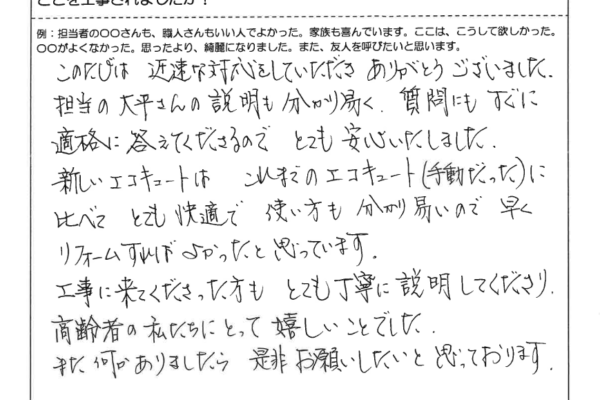 ここを工事されましたか？
例：担当者の〇〇さんも、職人さんもいい人でよかった。家族も喜んでいます。ここは、こうして欲しかった。
〇〇がよくなかった。思ったより、綺麗になりました。また、友人を呼びたいと思います。
このたびは 迅速な対応をしていただき ありがとうございました.
担当の大平さんの説明も分かり易く、質問にもすぐに
適格に答えてくださるので とても 安心いたしました.
新しいエコキュートは これまでのエコキュート(手動だった)に
比べて とても快適で 使い方も 分かり易いので 早く
リフォームすればよかったと思っています.
工事に来てくださった方も とても丁寧に説明してくださり.
高齢者の私たちにとって嬉しいことでした.
また何かありましたら 是非お願いしたいと思っております.